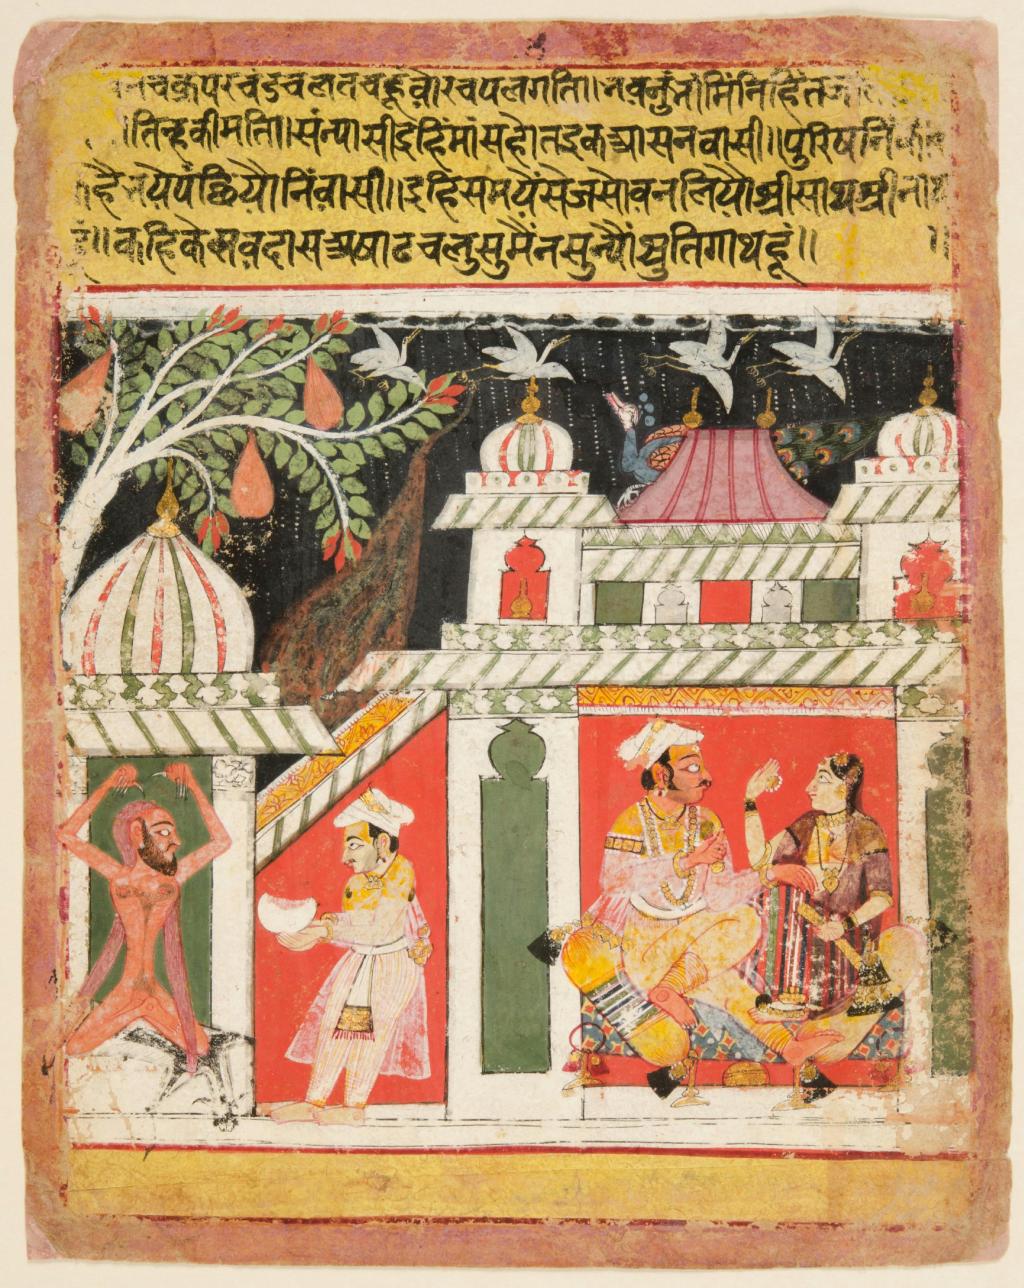 चक्रपरचंडचलतचहूंवोरचपलगति॥भवनुभामिनिहितज
तिन्हकीमति॥संन्यासीइहिमांसहोतइकआसनवासी॥पुरिषनि
कहैभयेपंछियौनिवासी॥इहिसमयंसेजसोवनलियौश्रीसाथश्रीनाथ
हूं॥कहिकेसवदासअषाढचलुसुमैनसुन्यौश्रुतिगाथहूं॥ ॥